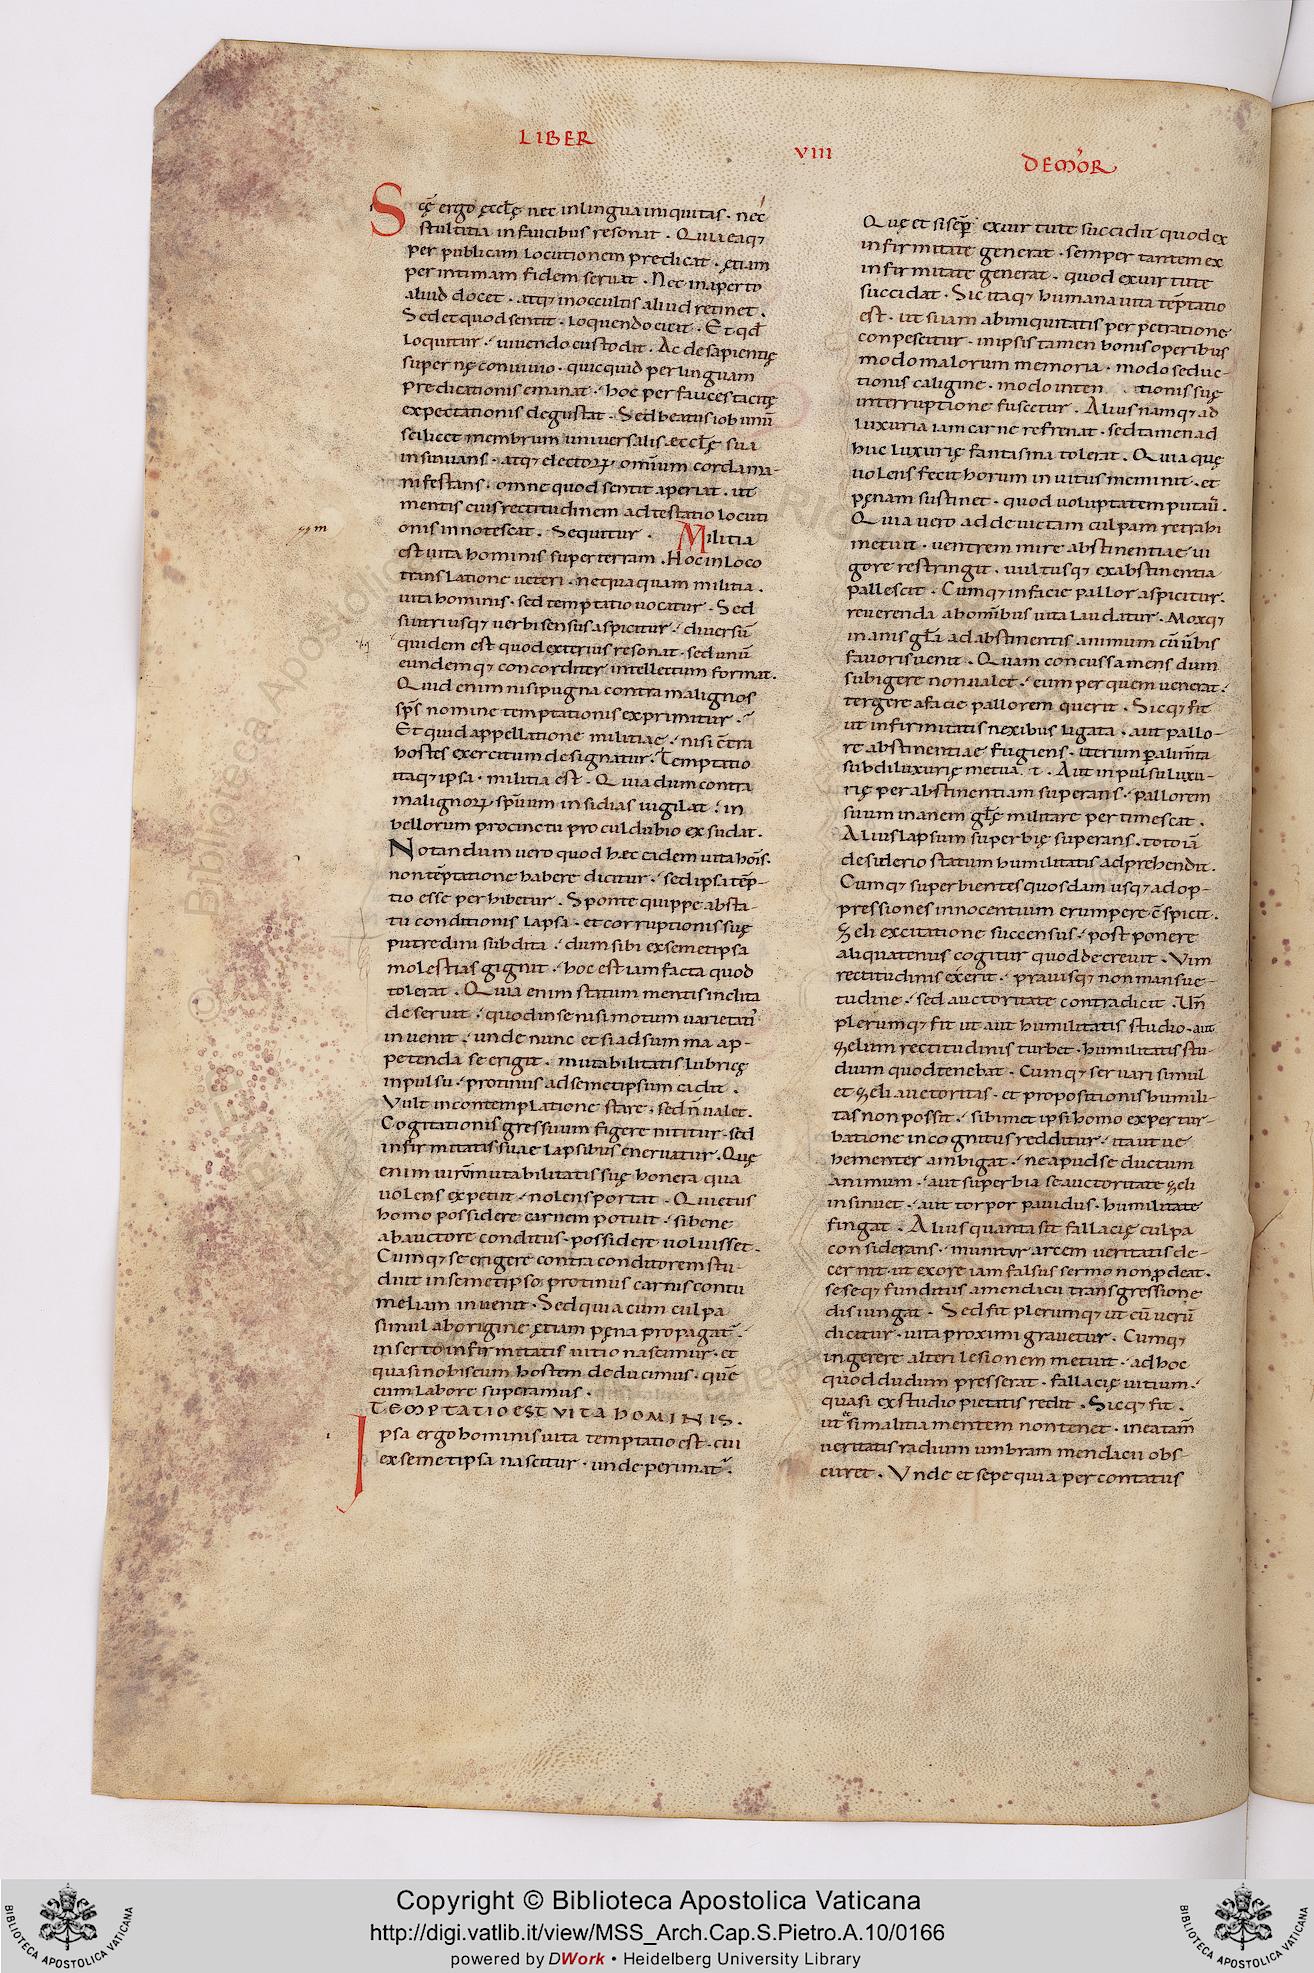 LIBER
VIII
DEMOR̄
Scę̄ ergo ęccl̄ę nec inlingua iniquitas · nec
stultitia infaucibus resonat . Quia eaq;
per publicam locutionem predicat · ętiam
per intimam fidem seruat . Nec inaperto
aliud docet · atq; inoccultis aliud retinet .
Sed et quod sentit · loquendo cicit . Et qđ
loquitur · uiuendo custodit . Ac de sapientię
supernę conuiuio · quicquid per linguam
predicationis emanat · hoc per fauces tacitę
expectationis degustat . Sed beatus iob unū
scilicet membrum uniuersalis eccl̄ę sua
insinuans · atq; electoꝝ omīum corda ma-
nifestans · omne quod sentit aperiat · ut
mentis eius rectitudinem ad testatio locuti
onis innotescat . Sequitur . Militia
est uita hominis super terram . Hoc in loco
translatione ueteri · nequaquam militia .
uita hominis · sed temptatio uocatur . Sed
si utriusq; uerbi sensus aspicitur · diuersū
quidem est quod exterius resonat · sed unū
eundemq; concorditer intellectum format .
Quid enim nisi pugna contra malignos
sp̄s nomine temptationis exprimitur .
Et quid appellatione militiae · nisi c̄tra
hostes exercitum designatur . Temptatio
itaq; ipsa · militia est . Quia dum contra
malignoꝝ sp̄uum insidias uigilat · in
bellorum procinctu procul dubio exsudat .
Notandum uero quod hæc eadem uita hoīs .
non tēptatione habere dicitur · sed ipsa tēp-
tio esse perhibetur . Sponte quippe absta-
tu conditionis lapsa · et corruptionis suę
putredini subdita · dum sibi ex semetipsa
molestias gignit · hoc est iam facta quod
tolerat . Quia enim statum mentis inclita
deseruit · quod inse nisi motum uarietati
inuenit · unde nunc et si ad summa ap-
petenda se erigit · mutabilitatis lubricę
inpulsu · protinus ad semetipsum cadit .
Vult in contemplatione stare · sed n̄ ualet .
Cogitationis gressum figere nititur · sed
infirmitatis suae lapsibus eneruatur . Quę
enim mutabilitatis suę honera qua
uolens expetiit · nolens portat . Quietus
homo possidere carnem potuit · si bene
ab auctore conditus · possidere uoluisset .
Cumq; se erigere contra conditorem stu-
duit in semetipso protinus carnis contu
meliam inuenit . Sed quia cum culpa
simul ab origine ętiam pęna propagat̄ .
inserto infirmitatis uitio nascimur · et
quasi nobiscum hostem deducimus · quē
cum labore superamus .
TEMPTATIO EST VITA HOMINIS .
Ipsa ergo hominis uita temptatio est · cui
ex semetipsa nascitur · unde perimat̄ .
Quę et si sēp exuirtute succidit quod ex
infirmitate generat · semper tantem ex
infirmitate generat · quod exuirtute
succidat . Sic itaq; humana uita tēptatio
est · ut si iam abiniquitatis perpetratione
conpescitur · inipsis tamen bonis operibus
modo malorum memoria · modo seduc-
tionis caligine · modo inten tionis suę
interruptione fuscetur . Alius namq; ad
luxuria iam carne refrenat · sed tamen ad
huc luxurię fantasma tolerat . Quia quę
uolens fecit horum inuitus meminit · et
pęnam sustinet · quod uoluptatem putauī .
Quia uero ad deuictam culpam retrahi
metuit · uentrem mire abstinentiae ui
gore restringit · uultusq; ex abstinentia
pallescit . Cumq; in facie pallor aspicitur .
reuerenda ab hom̄ibus uita laudatur . Moxq;
inanis gl̄a ad abstinentis animum cū ūbis
fauoris uenit . Quam concussa mens dum
subigere non ualet · eum per quem uenerat .
tergere afacie pallorem querit . Sicq; fit
ut infirmitatis nexibus ligata · aut pallo-
re abstinentiae fugiens · iterum p alim̄ta
subdi luxurię metua t . Aut inpulsu luxu-
rię per abstinentiam superans · pallorem
suum inanem gl̄ę militare pertimescat .
Alius lapsum superbię superans . toto iā
desiderio statum humilitatis adprehendit .
Cumq; superbientes quosdam usq; ad op-
pressiones innocentium erumpere c̄spicit .
zeli excitatione succensus · postponere
aliquatenus cogitur quod decreuit . Vim
rectitudinis exerit · prauisq; non mansue-
tudine · sed auctoritate contradicit . Un̄
plerumq; fit ut aut humilitatis studio · aut
zelum rectitudinis turbet · humilitatis stu-
dium quod tenebat . Cumq; seruari simul
et zeli auctoritas · et propositionis humili-
tas non possit · sibimet ipsi homo expertur-
batione incognitus redditur · ita ut ue
hementer ambigat · ne apud se ductum
animum · aut superbia se auctoritate zeli
insinuet · aut torpor pauidus · humilitate
fingat . Alius quanta sit fallacię culpa
considerans · munitur arcem ueritatis de-
cernit · ut exore iam falsus sermo non p̄deat .
seseq; funditus amendacii transgressione
disiungat . Sed fit plerumq; ut cū uerū
dicitur · uita proximi grauetur . Cumq;
ingerere alteri lesionem metuit · ad hoc
quod dudum presserat · fallacię uitium .
quasi exstudio pietatis redit . Sicq; fit .
ut &si malitia mentem non tenet · in ea tam̄
ueritatis radium umbram mendacii obs-
curet . Vnde et sepe quia percontatus
Copyright © Biblioteca Apostolica Vaticana
http://digi.vatlib.it/view/MSS_Arch.Cap.S.Pietro.A.10/0166
powered by DWork • Heidelberg University Library
BIBLIOTECA APOSTOLICA VATICANA
BIBLIOTECA APOSTOLICA VATICANA